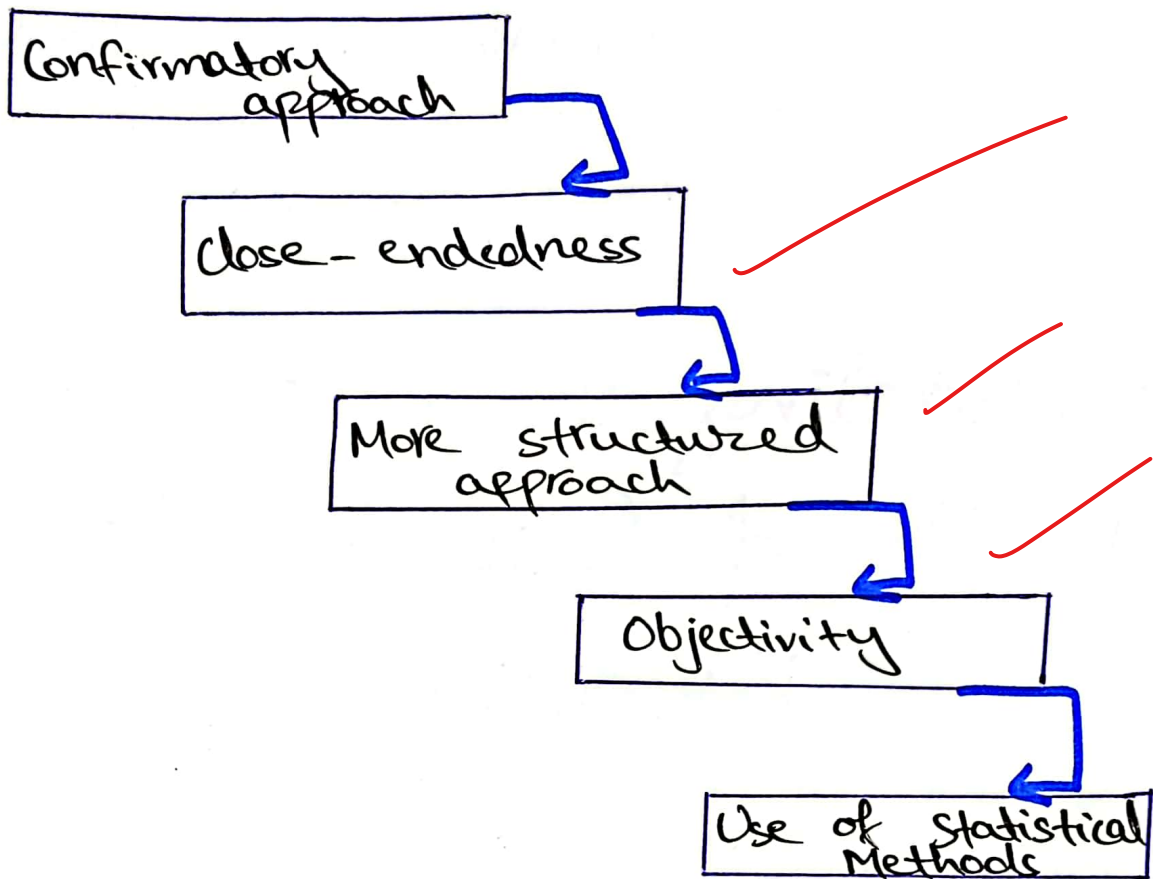 Confirmatory
approach
Close-endedness
More structured
approach
Objectivity
Use of statistical
Methods